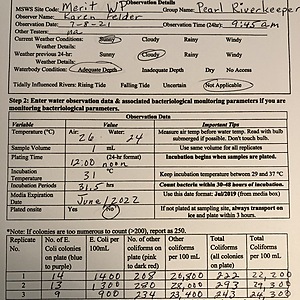 Observation Details
MSWS Site Code: Merit WP Group Name: Pearl Riverkeeper
Observer Name: Karen Felder
Observation Date: 7-8-21 Observation Time (24hr): 9:45 am
Other Testers: na
Current Weather Conditions: Sunny Cloudy Rainy Windy
Weather Details:
Weather previous 24-hr: Sunny Cloudy Rainy Windy
Weather Details:
Waterbody Condition: Adequate Depth Inadequate Depth Dry No Access
Tidally Influenced Rivers: Rising Tide Falling Tide Uncertain Not Applicable
Step 2: Enter water observation data & associated bacteriological monitoring parameters if you are
monitoring bacteriological parameters.
Observation Data
Variable Value Important Tips
Temperature (°C) Air: 26 Water: 24 Measure air temp before water temp. Read with bulb submerged if possible. Don't touch bulb!
Sample Volume 1 mL Use same volume for all replicates
Plating Time (24-hr format) 12:00 noon Incubation begins when samples are plated.
Incubation Temperature 31 °C Keep incubation temperature between 29 and 37 °C
Incubation Periods 31.5 hrs Count bacteria within 30-48 hours of incubation.
Media Expiration Date June/2022 Use this date format: Jul/2019 (from media box)
Plated onsite Yes No If not plated at sampling site, always transport on ice and plate within 3 hours.
*Note: If colonies are too numerous to count (>200), report as 250.
Replicate No. No. of E. Coli colonies on plate (blue to purple) E. Coli per 100mL No. of other coliforms on plate (pink to dark red) Other coliforms per 100mL Total Coliforms (all colonies on plate) Total Coliforms per 100 mL
1 14 1400 208 20,800 222 22,200
2 13 1300 280 28,000 293 29,300
3 9 900 234 23,400 243 24,300